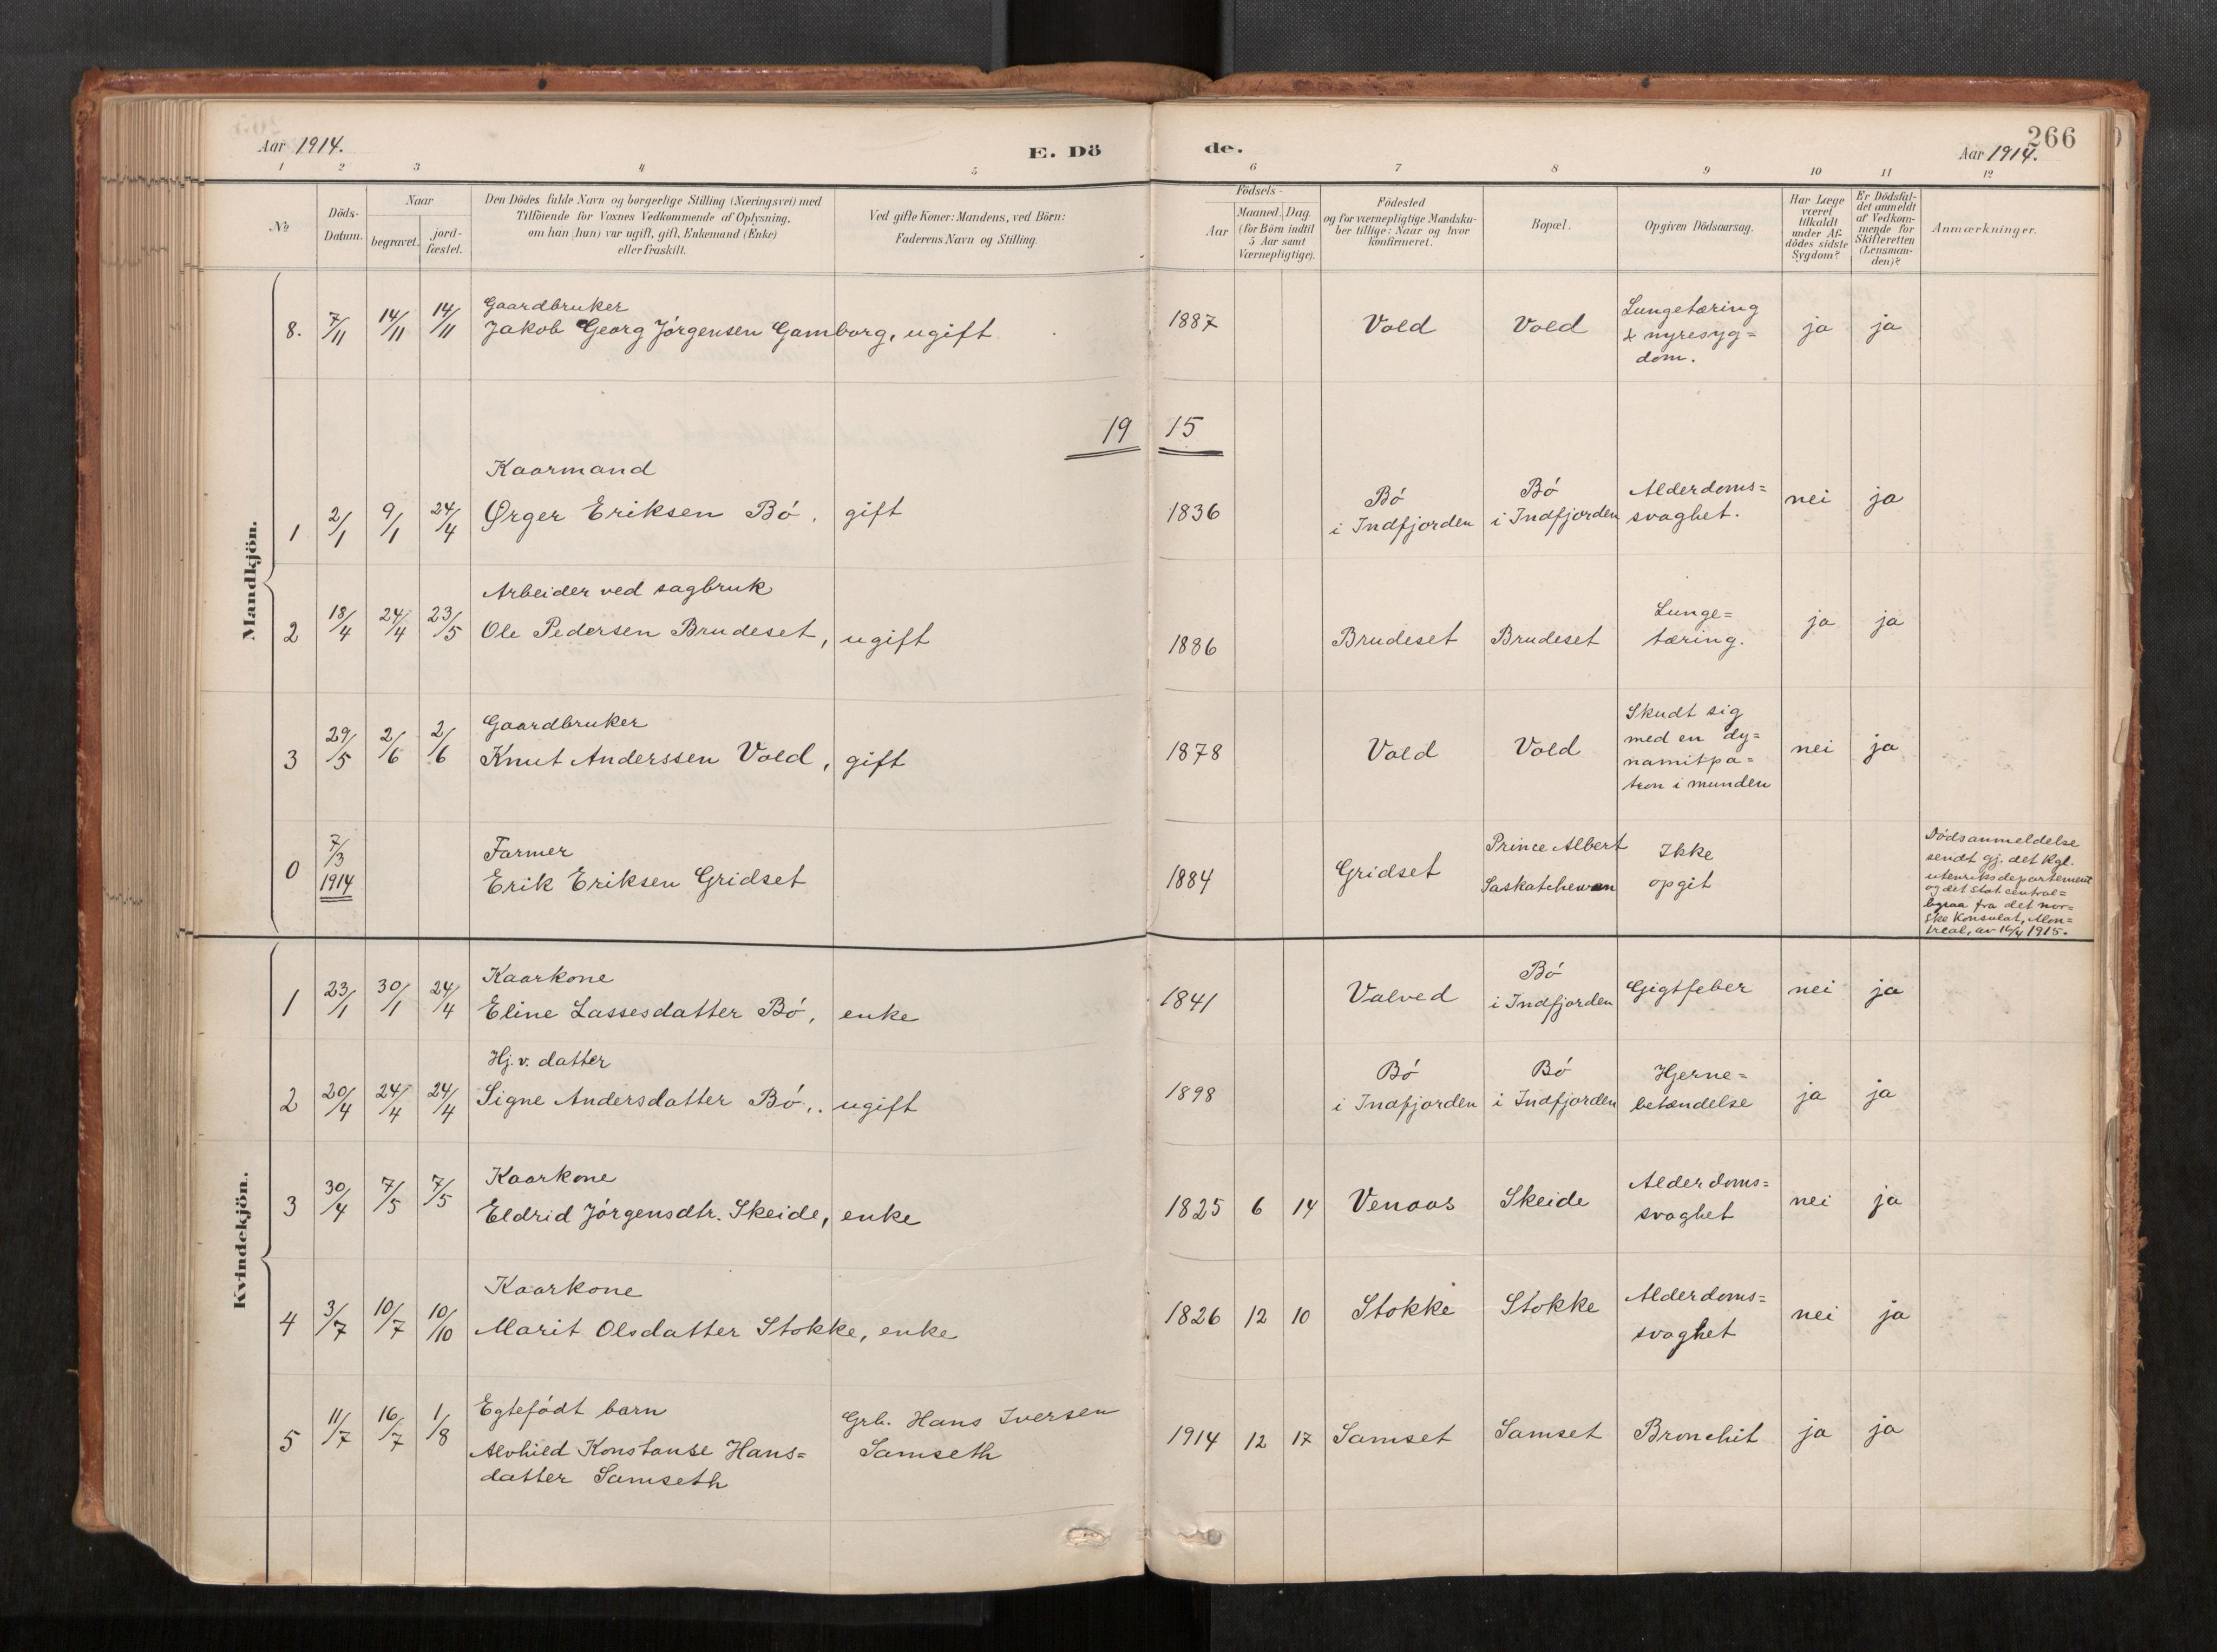 266
Aar 1914.
E. Dö
de.
Aar 1914.
1 2 3 4 5 6 7 8 9 10 11 12
No
Döds-
Datum.
Naar
begravet.
jord-
fæstet.
Den Dödes fulde Navn og borgerlige Stilling (Næringsvei) med
Tilföiende for Voxnes Vedkommende af Oplysning,
om han (hun) var ugift, gift, Enkemand (Enke)
eller fraskilt.
Ved gifte Koner: Mandens, ved Börn:
Faderens Navn og Stilling.
Födsels-
Aar
Maaned.
Dag.
(for Börn indtil
5 Aar samt
Værnepligtige).
Födested
og for værnepligtige Mandska-
ber tillige: Naar og hvor
konfirmeret.
Bopæl.
Opgiven Dödsaarsag.
Har Læge
været
tilkaldt
under Af-
dödes sidste
Sygdom?
Er Dödsfal-
det anmeldt
af Vedkom-
mende for
Skifteretten
(Lensman-
den)?
Anmærkninger.
Mandkjön.
8. 7/11 14/11 14/11
Gaardbruker
Jakob Georg Jórgensen Gamborg, ugift
1887 Vold Vold
Lungetæring
& nyresyg=
dom.
ja ja
19 15
1 2/1 9/1 24/4
Kaarmand
Ørger Eriksen Bó, gift
1836
Bó
i Indfjorden
Bó
i Indfjorden
Alderdoms=
svaghet.
nei ja
2 18/4 24/4 23/5
Arbeider ved sagbruk
Ole Pedersen Brudeset, ugift
1886 Brudeset Brudeset
Lunge=
tæring.
ja ja
3 29/5 2/6 2/6
Gaardbruker
Knut Anderssen Vold, gift
1878 Vold Vold
Skudt sig
med en dy=
namitpa=
tron i munden
nei ja
0 7/3
1914
Farmer
Erik Eriksen Gridset
1884 Gridset
Prince Albert
Saskatchewan
Ikke
opgit
Dódsanmeldelse
sendt gj. det Kgl.
utenriksdepartement
og det stat. central=
fra det nor=
ske Konsulat, Mon=
treal, av 16/4 1915.
Kvindekjön.
1 23/1 30/1 24/4
Kaarkone
Eline Lassesdatter Bó, enke
1841 Valved
Bó
i Indfjorden
Gigtfeber nei ja
2 20/4 24/4 24/4
Hj. v. datter
Signe Andersdatter Bó,. ugift
1898
Bó
i Indfjorden
Bó
i Indfjorden
Hjerne=
betændelse
ja ja
3 30/4 7/5 7/5
Kaarkone
Eldrid Jórgensdtr. Skeide, enke
1825 6 14 Venaas Skeide
Alderdoms=
svaghet
nei ja
4 3/7 10/7 10/10
Kaarkone
Marit Olsdatter Stokke, enke
1826 12 10 Stokke Stokke
Alderdoms=
svaghet
nei ja
5 11/7 16/7 1/8
Egtefódt barn
Alvhild Konstanse Hans=
datter Samseth
Grb. Hans Iversen
Samseth
1914 12 17 Samset Samset Bronchit ja ja